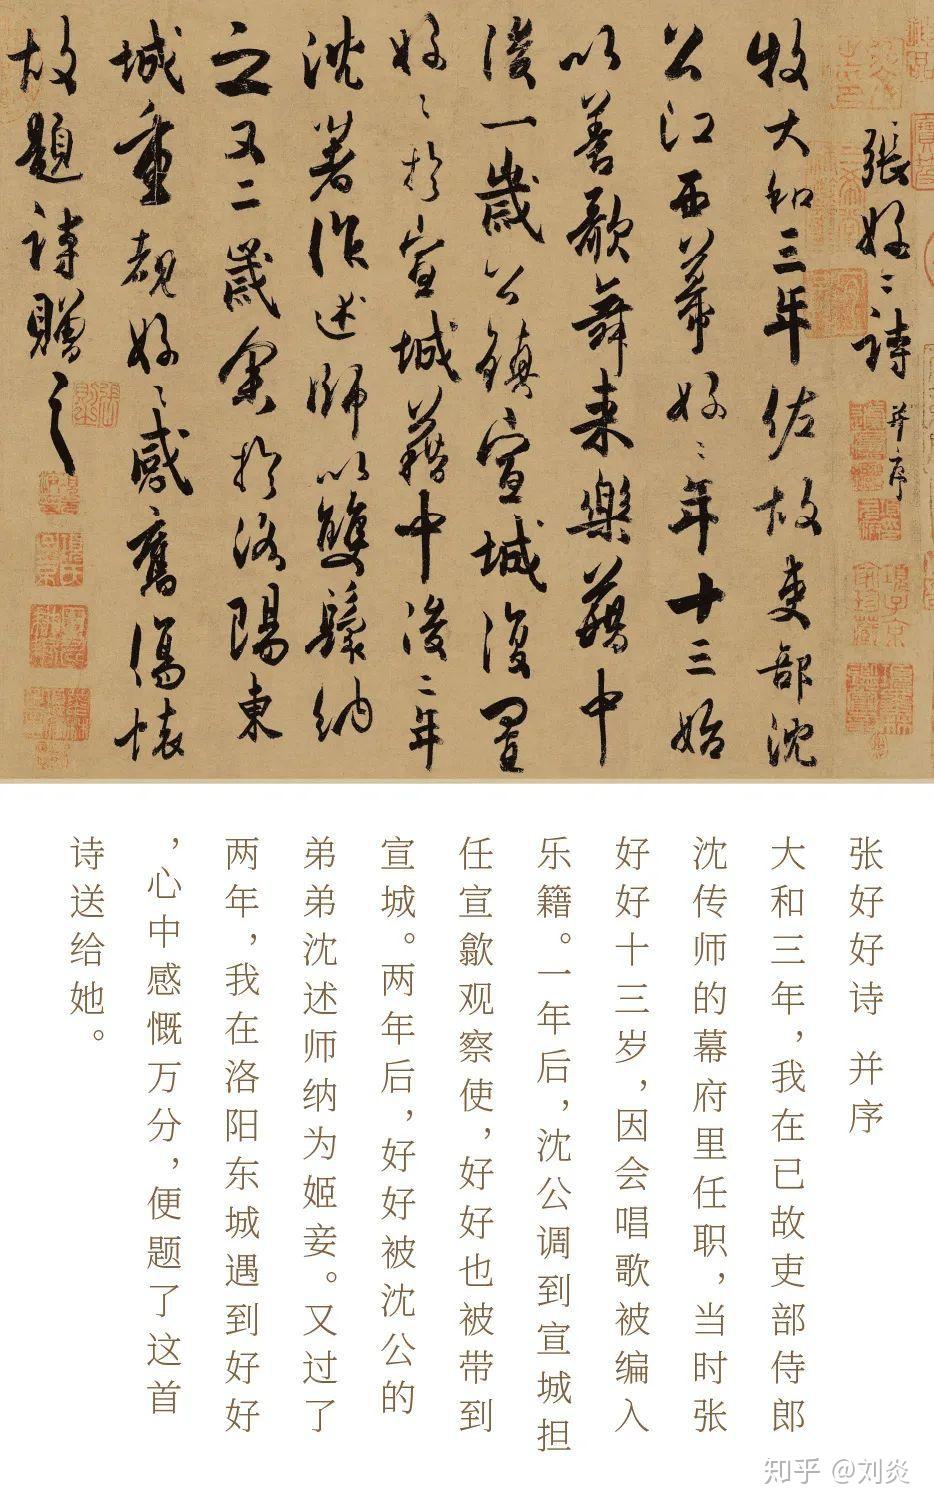 張好〻詩 并序
牧大和三年佐故吏部沈
公江西幕好〻年十三始
以善歌舞来樂籍中
後一歲公鎮宣城復置
好〻於宣城籍中後二年
沈著作述師以雙鬟納
之又二歲余於洛陽東
城重覩好〻感舊傷懷
故題詩贈之
张好好诗 并序
大和三年，我在已故吏部侍郎
沈传师的幕府里任职，当时张
好好十三岁，因会唱歌被编入
乐籍。一年后，沈公调到宣城担
任宣歙观察使，好好也被带到
宣城。两年后，好好被沈公的
弟弟沈述师纳为姬妾。又过了
两年，我在洛阳东城遇到好好
，心中感慨万分，便题了这首
诗送给她。
知乎 @刘炎